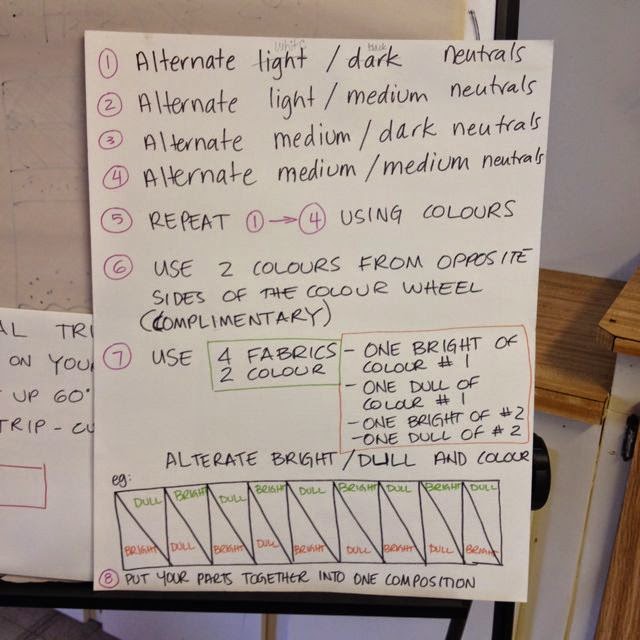 white black
① Alternate light / dark neutrals
② Alternate light / medium neutrals
③ Alternate medium / dark neutrals
④ Alternate medium / medium neutrals
⑤ REPEAT ① → ④ USING COLOURS
⑥ USE 2 COLOURS FROM OPPOSITE
SIDES OF THE COLOUR WHEEL
(COMPLIMENTARY)
⑦ USE 4 FABRICS
2 COLOUR
- ONE BRIGHT OF
COLOUR # 1
- ONE DULL OF
COLOUR # 1
- ONE BRIGHT OF #2
- ONE DULL OF # 2
ALTERATE BRIGHT / DULL AND COLOUR
eg:
DULL BRIGHT DULL BRIGHT DULL BRIGHT DULL BRIGHT DULL
BRIGHT DULL BRIGHT DULL BRIGHT DULL BRIGHT DULL BRIGHT
⑧ PUT YOUR PARTS TOGETHER INTO ONE COMPOSITION
AL TRI
ON YOU
UP 60°
TRIP - CU